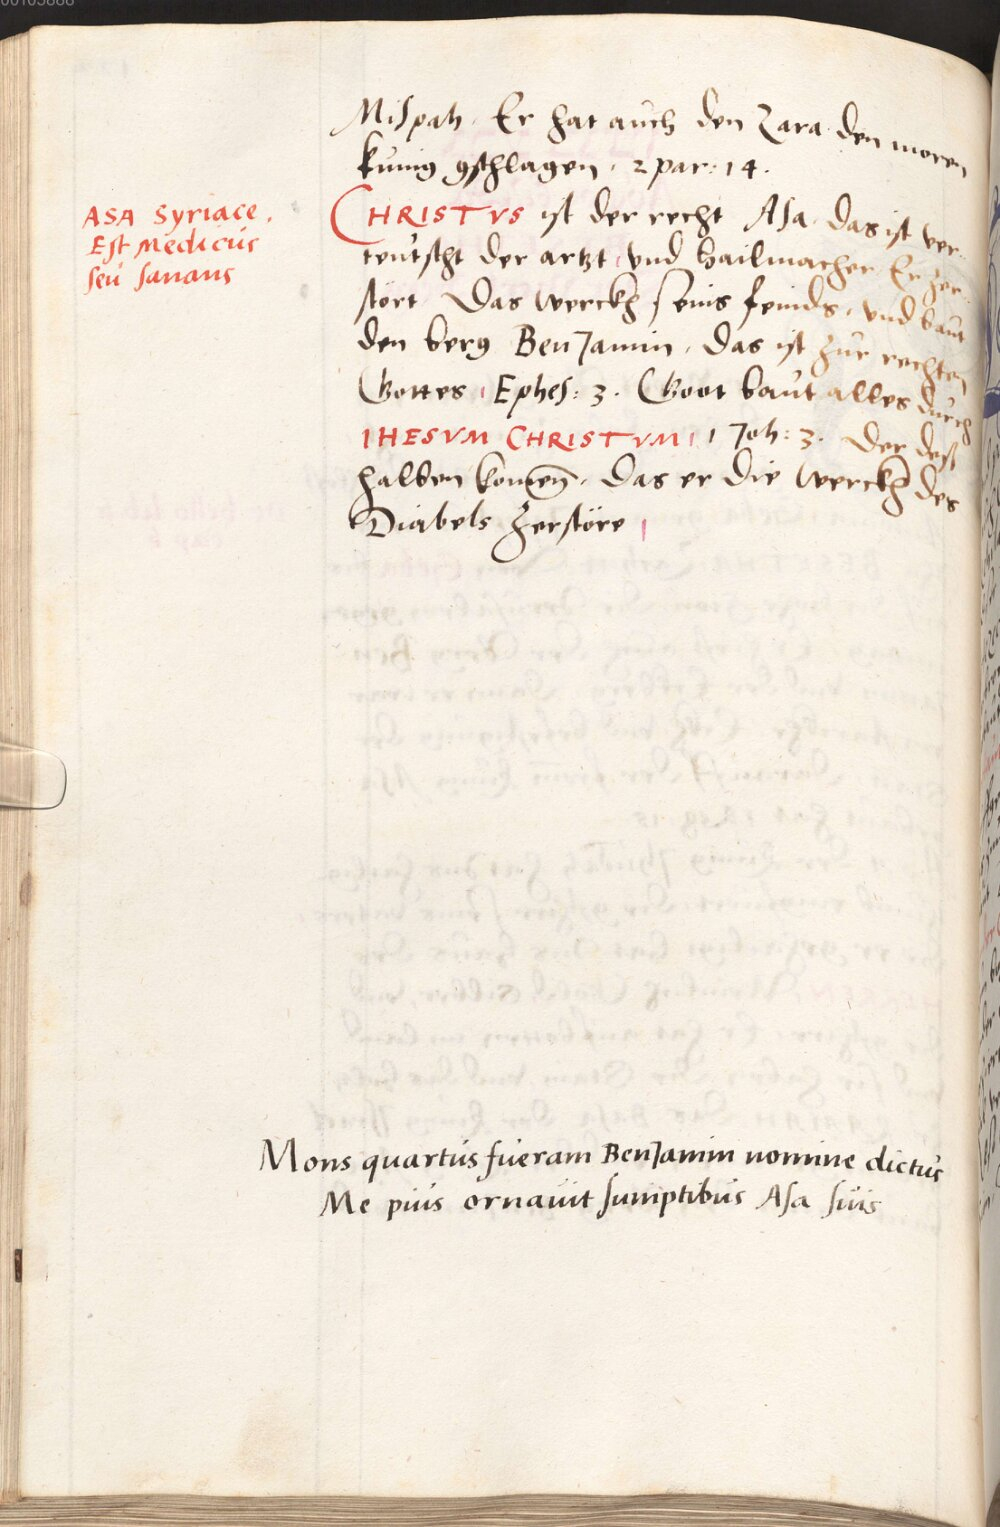 Mispah. Er hat auch den Zara den moren
kunig gschlagen. 2 par: 14.
ASA Syriace.
Est Medicus
seu sanans
CHRISTVS ist der recht Asa. das ist ver-
teutscht der artzt, vnd hailmacher. Er zer-
stört Das werckh seins feinds, vnd baut
den berg BenJamin. das ist zur rechten
Gottes, Ephes: 3. Goot baut alles durch
IHESVM CHRISTVM, 1 Joh: 3. Der dest
halben komen̄. das er die werckh des
Diabels zerstöre
Mons quartus fueram BenJamin nomine dictus
Me pius ornauit sumptibus Asa suis